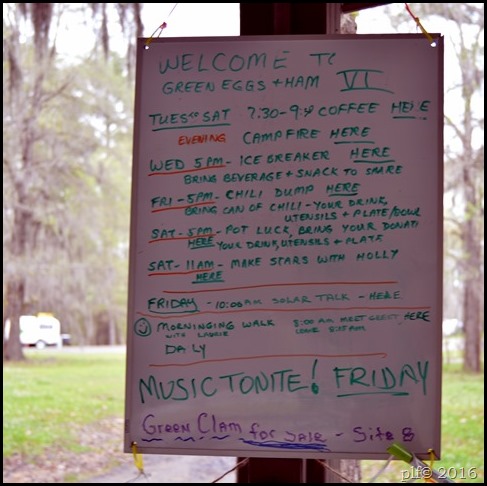 WELCOME TO
GREEN EGGS + HAM VI
TUES TO SAT 7:30-9:30 COFFEE HERE
EVENING CAMPFIRE HERE
WED 5PM - ICE BREAKER HERE
BRING BEVERAGE + SNACK TO SHARE
FRI - 5PM - CHILI DUMP HERE
BRING CAN OF CHILI - YOUR DRINK,
UTENSILS + PLATE/BOWL
SAT - 5PM - POT LUCK, BRING YOUR DONATI
HERE YOUR DRINK, UTENSILS + PLATE
SAT - 11AM - MAKE STARS WITH HOLLY
HERE
FRIDAY - 10:00AM SOLAR TALK - HERE
MORNINGING WALK 8:00 AM MEET GREET HERE
WITH LAURIE LEAVE 8:15AM
DAILY
MUSIC TONITE! FRIDAY
Green Clam for SALE - Site 8
plf© 2016